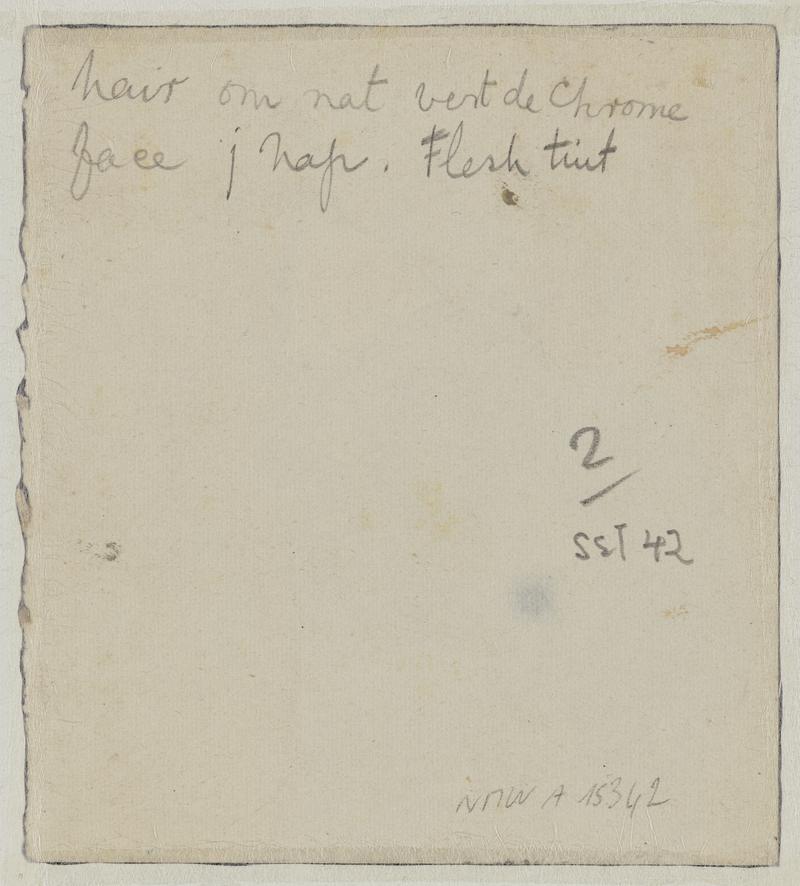 hair om nat vert de Chrome
face j nap. Flesh tint
2/
SET 42
NMW A 15342